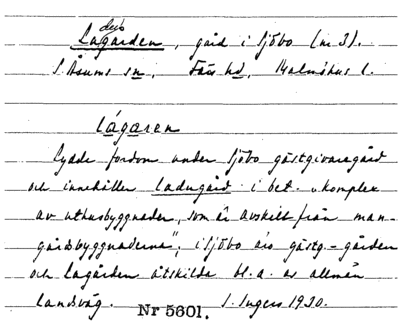 dvs
Lagården, gård i Sjöbo (nr 3).
S. Åsums sn, Färs hd, Malmöhus l.
lágaren
Lydde fordom under Sjöbo gästgivaregård
och innehåller ladugård i bet. "komplex
av uthusbyggnader, som är avskilt från man-
gårdsbyggnaderna"; i Sjöbo äro gästg.-gården
och Lagården åtskilda bl.a. av allmän
landsväg.
Nr 5601. I. Ingers 1930.